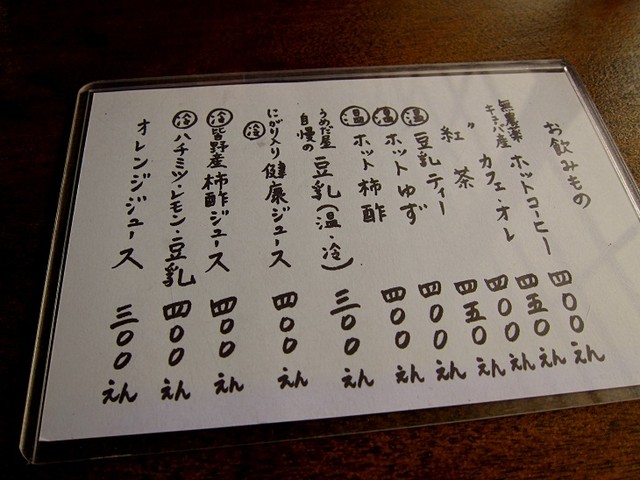 お飲みもの
無農薬
キューバ産
ホットコーヒー 四〇〇えん
〃 カフェ・オレ 四五〇えん
紅茶 四〇〇えん
㊤温 豆乳ティー 四五〇えん
温 ホットゆず 四〇〇えん
温 ホット柿酢 四〇〇えん
うめだ屋
自慢の
豆乳(温・冷) 三〇〇えん
冷 にがり入り健康ジュース 四〇〇えん
冷 皆野産柿酢ジュース 四〇〇えん
冷 ハチミツ・レモン・豆乳 四〇〇えん
オレンジジュース 三〇〇えん